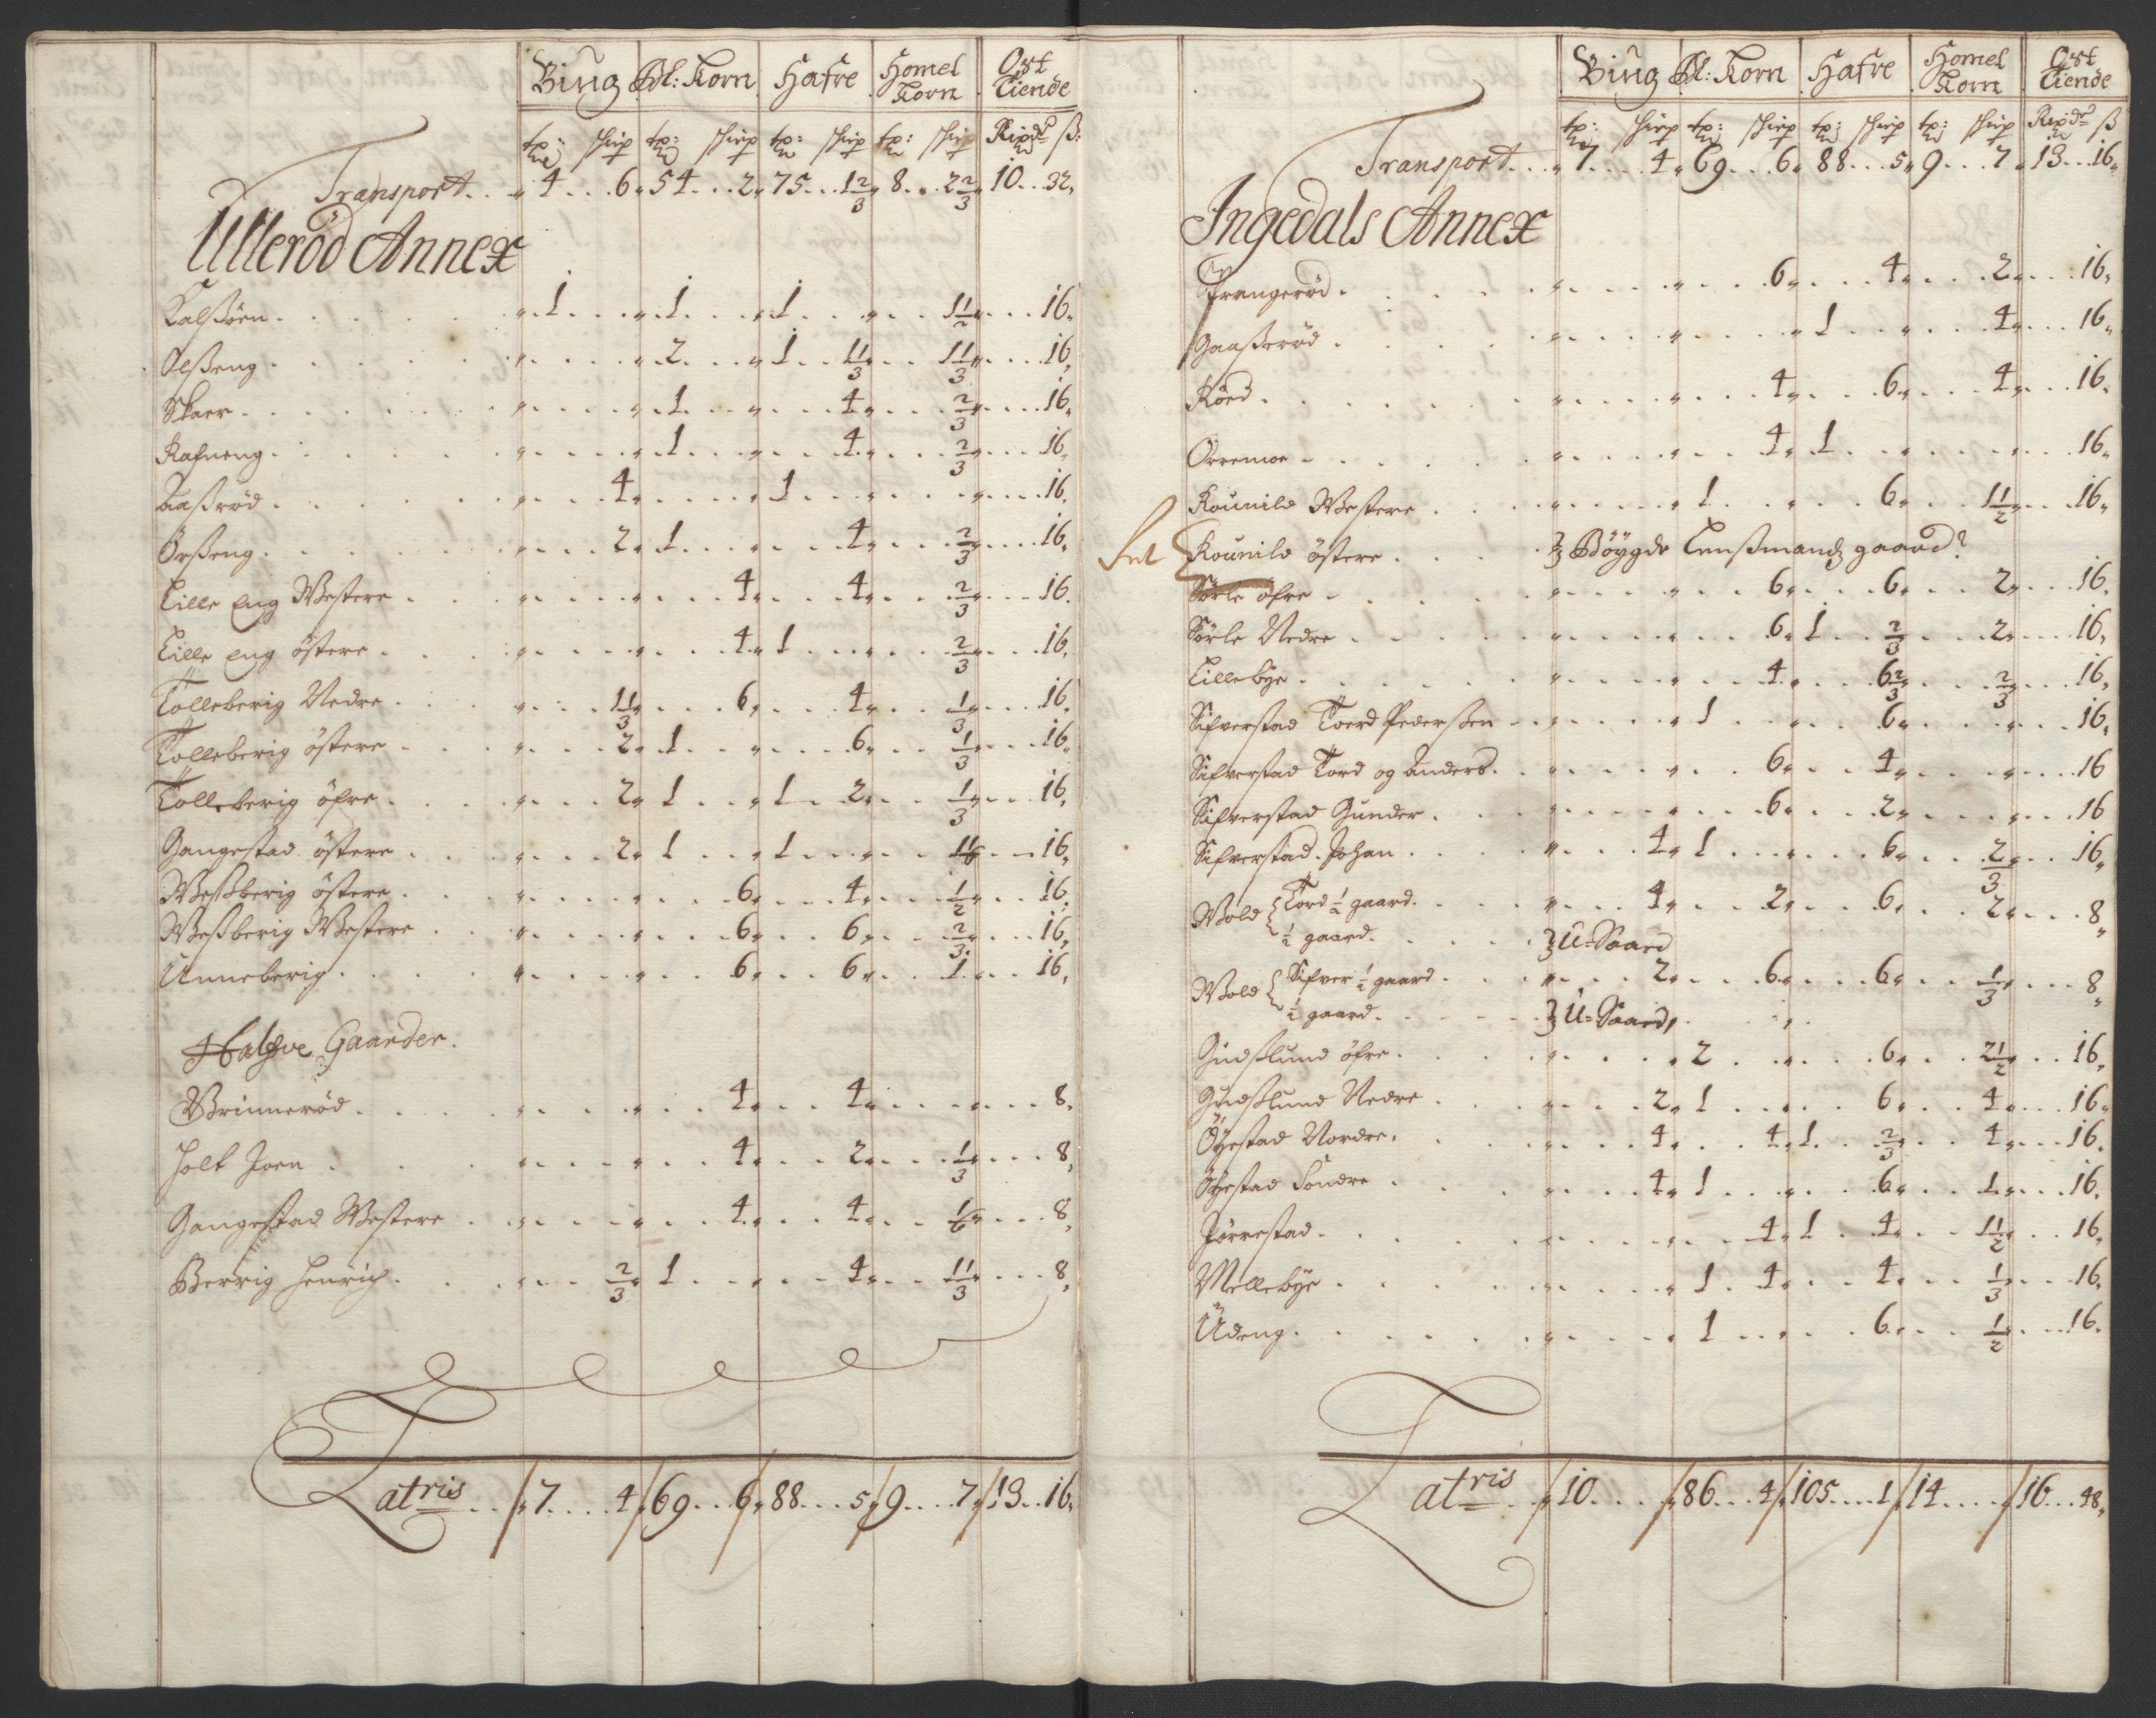 Biug Bl: Korn Hafre Homel Korn Ost Tiende
tr: shiep tr: shiep tr: shiep tr: shiep Rixdr ß:
Transport. . „ 4 . . . 6 „ 54 . . . 2 „ 75 . . 1 2/3 „ 8 . . 2 2/3 „ 10 . . 32 „
Ullerød Annex
Kalßøen . . 1 . . 1 . . 1 . . 1 1/2 . . 16 „
Olßeng . . 2 . . 1 . . 1 1/3 . . 1 1/3 . . 16 „
Skaer . . 1 . . 4 . . 2/3 . . 16 „
Rafneng . . 1 . . 4 . . 2/3 . . 16 „
Aaßrød . . 4 . . 1 . . 16 „
Örßeng . . 2 . . 1 . . 4 . . 2/3 . . 16 „
Lille Eng Westere . . 4 . . 4 . . 2/3 . . 16 „
Lille Eng östere . . 4 . . 1 . . 2/3 . . 16 „
Tolleberig Nedre . . 1 1/3 . . 6 . . 4 . . 1/3 . . 16 „
Tolleberig östere . . 2 . . 1 . . 6 . . 1/3 . . 16 „
Tolleberig öfre . . 2 . . 1 . . 1 . . 2 . . 1/3 . . 16 „
Gangestad östere . . 2 . . 1 . . 1 . . 1 1/6 . . 16 „
Weßberig östere . . 6 . . 4 . . 1/2 . . 16 „
Weßberig Westere . . 6 . . 6 . . 2/3 . . 16 „
Unneberig . . 6 . . 6 . . 1 . . 16 „
Halfve Gaarder.
Brinnerød . . 4 . . 4 . . 8 „
Holt Joen . . 4 . . 2 . . 1/3 . . 8 „
Gangestad Westere . . 4 . . 4 . . 1/6 . . 8 „
Berrig Henrich . . 2/3 . . 1 . . 4 . . 1 1/3 . . 8 „
Latris . . 7 . . . 4 / 69 . . 6 / 88 . . . 5 / 9 . . . 7 / 13 . . 16 „
Biug Bl: Korn Hafre Homel Korn Ost Tiende
tr: shiep tr: shiep tr: shiep tr: shiep Rixdr ß
Transport . . . „ 7 . . . 4 „ 69 . . . 6 „ 88 . . . 5 „ 9 . . . 7 „ 13 . . 16 „
Ingedals Annex
Frangerød . . 6 . . 4 . . 2 . . 16 „
Gaaßerød . . 1 . . 4 . . 16 „
Röed . . 4 . . 6 . . 4 . . 16 „
Orremoe . . 4 . . 1 . . 16 „
Rounild Westere . . 1 . . 6 . . 1 1/2 . . 16 „
Rounild östere . . Böygde Lenßmandz gaard
Sörle öfre . . 6 . . 6 . . 2 . . 16 „
Sörle Nedre . . 6 . . 1 . . 2/3 . . 2 . . 16 „
Lillebye . . 4 . . 6 2/3 . . 2/3 . . 16 „
Sifverstad Toerd Pederßen . . 1 . . 6 . . 16 „
Sifverstad Tord og Anders . . 6 . . 4 . . 16
Sifverstad Gunder . . 6 . . 2 . . 16
Sifverstad Johan . . 4 . . 1 . . 6 . . 2/3 . . 16 „
Wold { Tord 1/2 gaard . . 4 . . 2 . . 6 . . 2 . . 8 „
1/2 gaard . . U-Saaed
Wold { Sifver 1/2 gaard . . 2 . . 6 . . 6 . . 1/3 . . 8 „
1/2 gaard . . U-Saaed
Gudßlund öfre . . 2 . . 6 . . 2 1/2 . . 16 „
Gudßlund Nedre . . 2 . . 1 . . 6 . . 4 . . 16 „
Öyestad Nordre . . 4 . . 4 . . 1 . . 2/3 . . 4 . . 16 „
Öyestad Söndre . . 4 . . 1 . . 6 . . 1 . . 16 „
Jörrestad . . 4 . . 1 . . 4 . . 1 1/2 . . 16 „
Mellebye . . 1 . . 4 . . 4 . . 1/3 . . 16 „
Udeng . . 1 . . 6 . . 1/2 . . 16 „
Latris . . / 10 . . . / 86 . . 4 / 105 . . . 1 / 14 . . . / 16 . . . 48 „